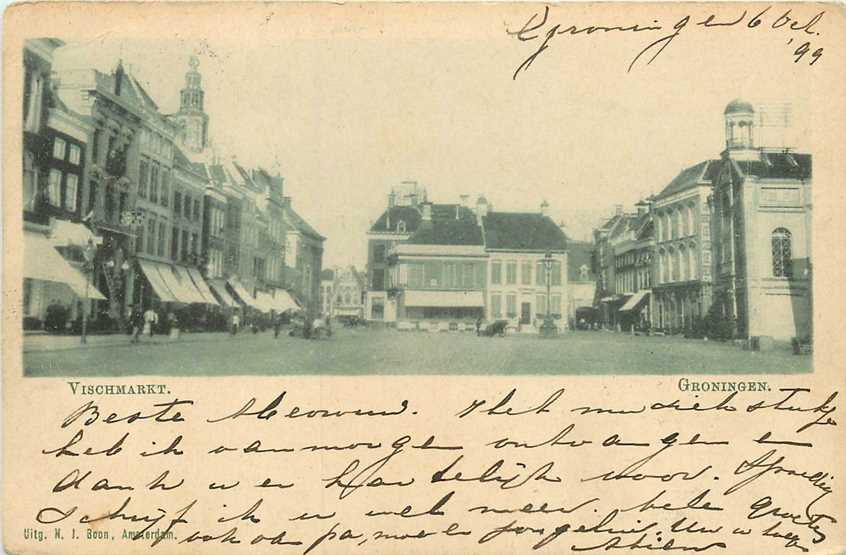 Groningen 6 Oct.
'99
VISCHMARKT.
GRONINGEN.
Beste Mevrouw. Het muziekstukje
heb ik vanmorgen ontvangen en
dank u er hartelijk voor. Spoedig
schrijf ik u wel meer. Vele groeten
ook aan pa, moe
Uitg. N. J. Boon, Amsterdam.